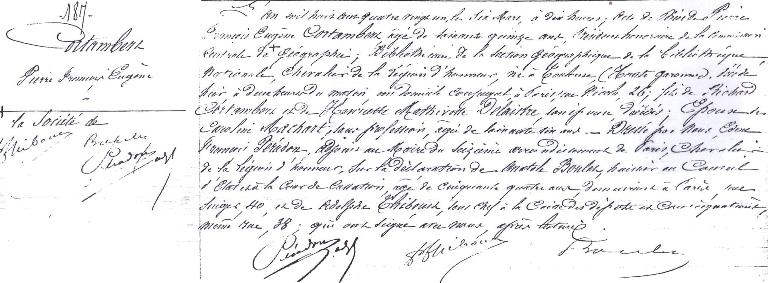 187
Cortambert
Pierre François Eugène
la Société de
L'an mil huit cent quatre vingt un, le six Mars, à dix heures, Acte de Décès de Pierre
François Eugène Cortambert âgé de soixante quinze ans, Président honoraire de la Commission
Centrale de Géographie; Bibliothécaire de la section Géographique de la Bibliothèque
Nationale, Chevalier de la Légion d'honneur, né à Toulouse (Haute Garonne), décédé
hier à deux heures du matin en domicile conjugal à Paris, rue 26; fils de Richard
Cortambert et de Henriette Mathivotte Delaistre, son épouse, décédés; Epoux de
Caroline Machart, sans profession, âgée de soixante six ans. — Dressé par Nous
François Adjoint au Maire du seizième arrondissement de Paris, Chevalier
de la Légion d'honneur, sur la déclaration de Anatole Boulet, huissier au Conseil
d'Etat et à la Cour de Cassation, âgé de cinquante quatre ans demeurant à Paris, rue
40, et de Adolphe Thibout, sous chef à la Caisse des dépôts et Consignations,
même rue, 38; qui ont signé avec nous après lecture.